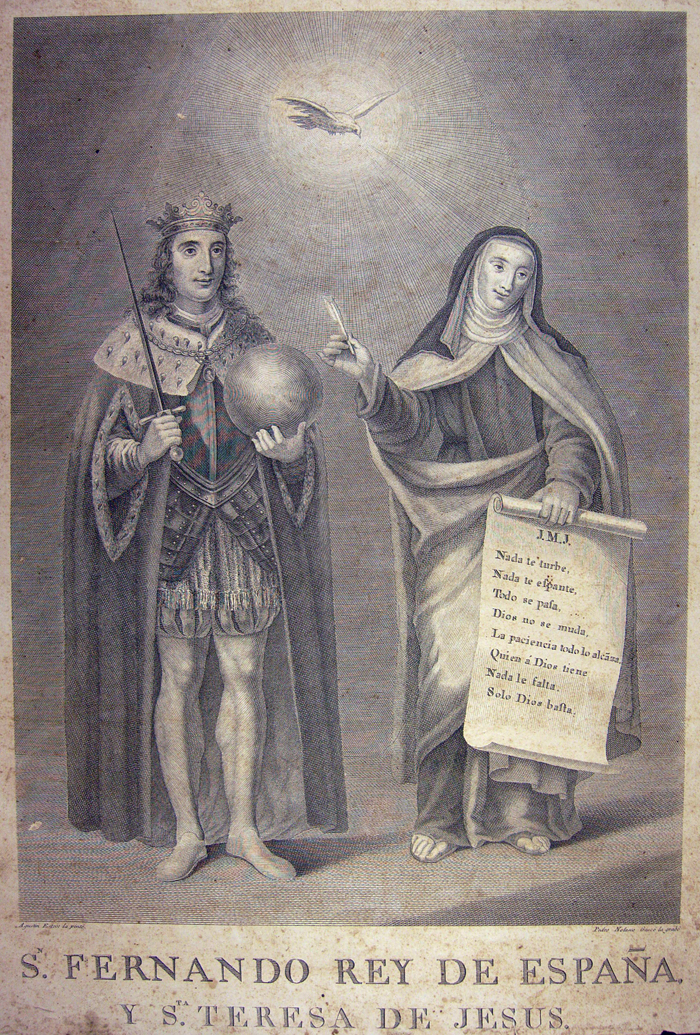 J.M.J.
Nada te turbe,
Nada te eſpante,
Todo se paſa,
Dios no se muda,
La paciencia todo lo alcãza,
Quien á Dios tiene
Nada le falta.
Solo Dios baſta.
Agustin la pintó
Pedro la grabó
S.N FERNANDO REY DE ESPAÑA,
Y S.TA TERESA DE JESUS.